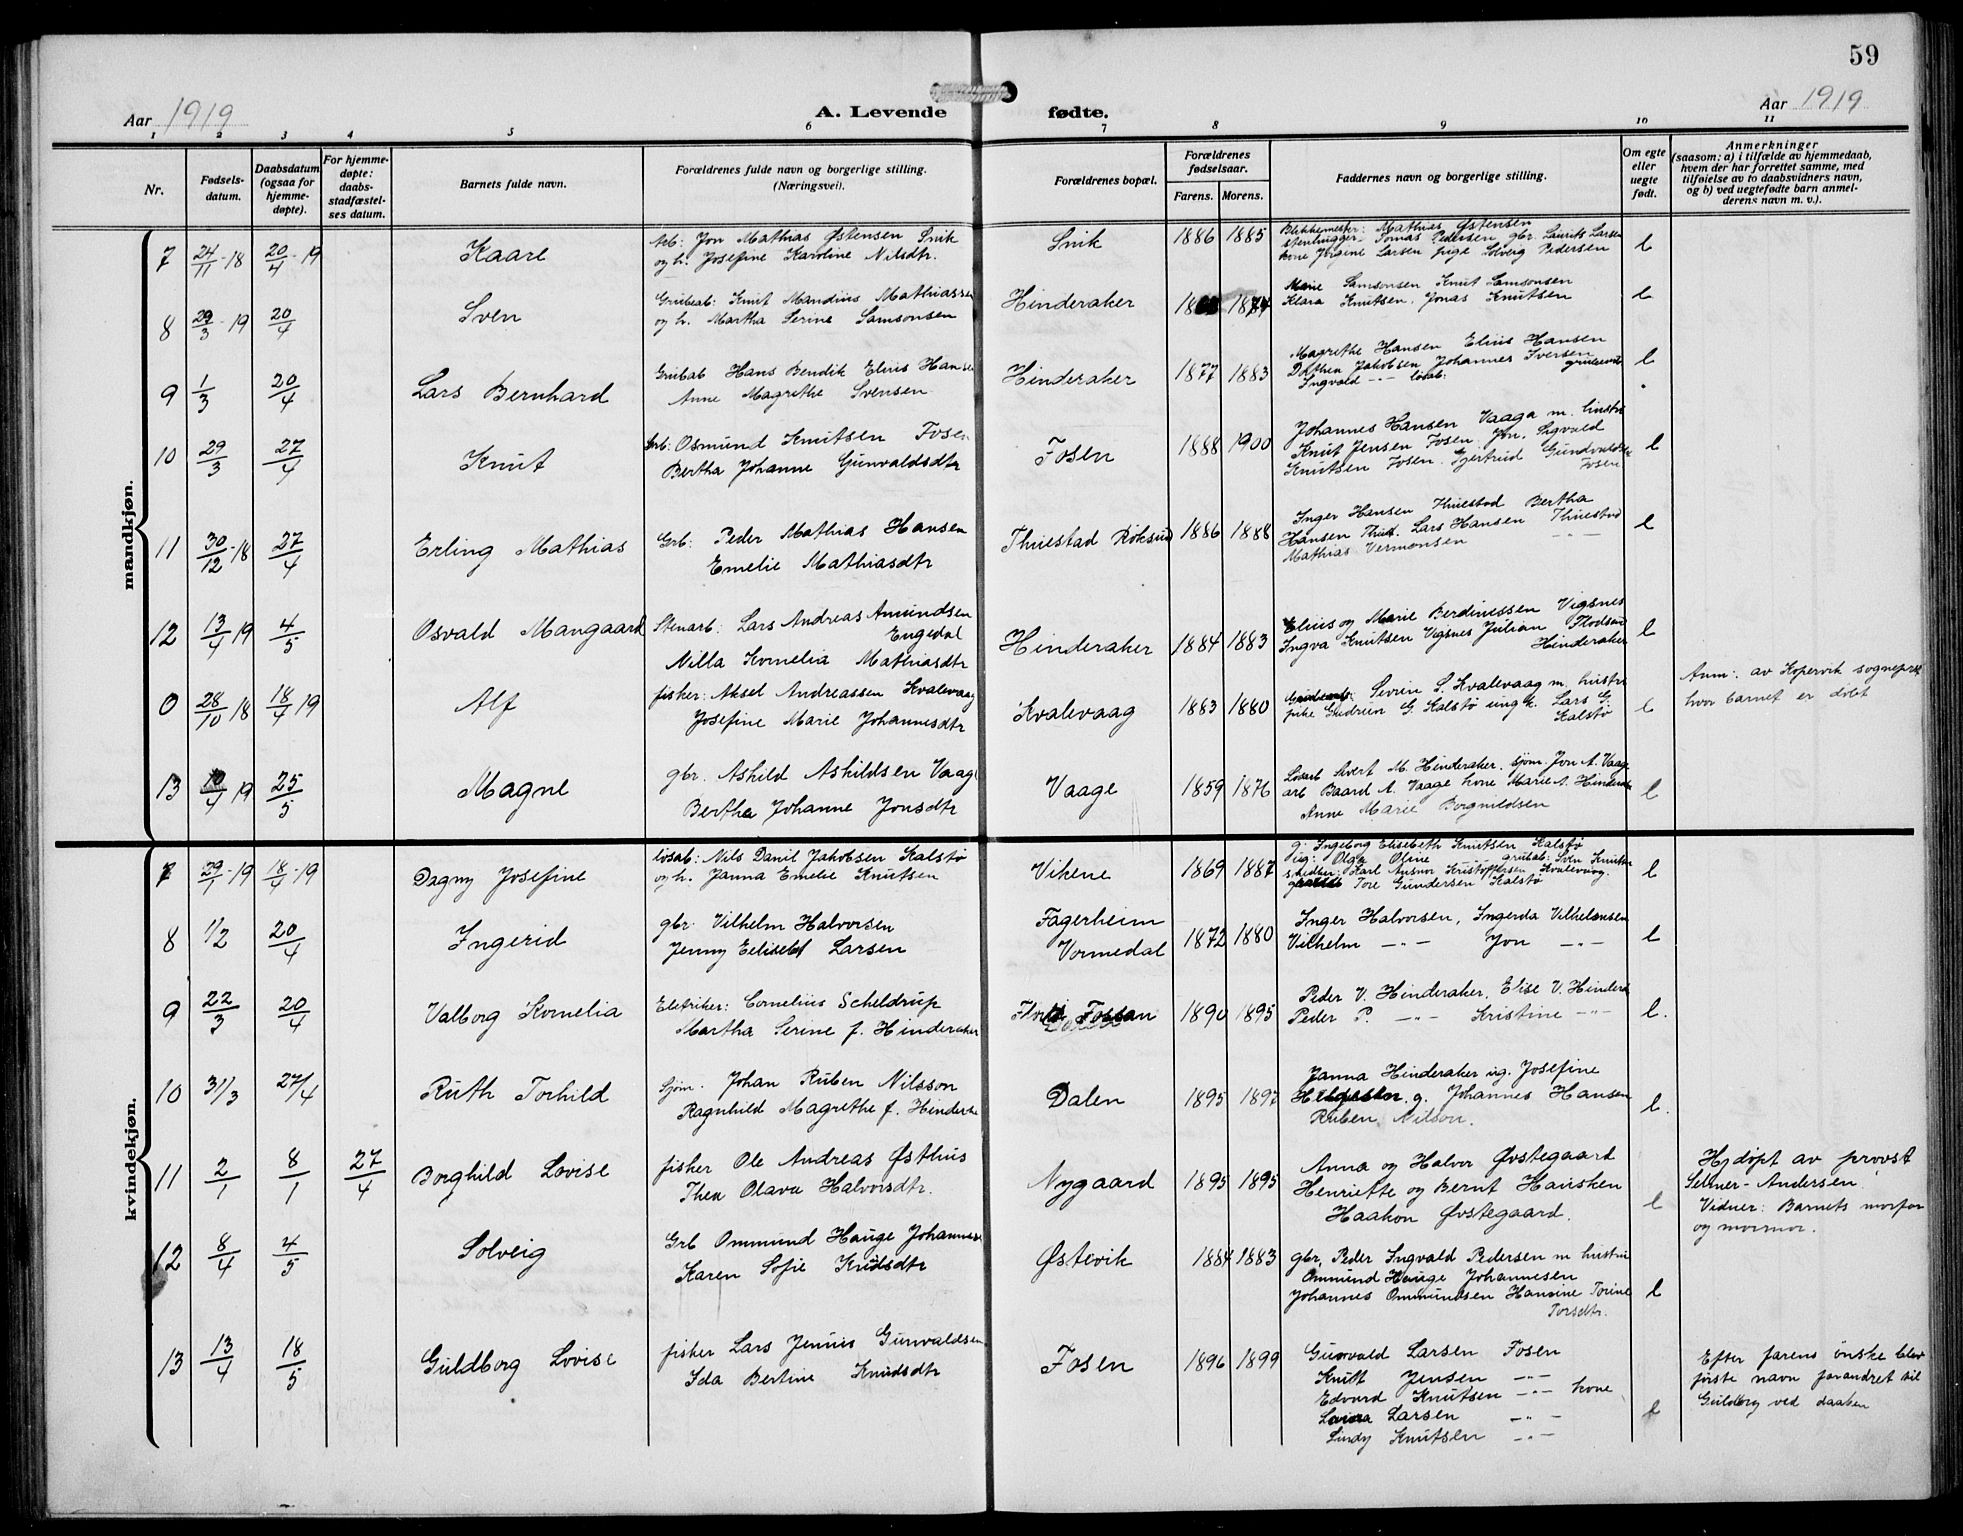 59
Aar 1919
A. Levende fødte.
Aar 1919
1 2 3 4 5 6 7 8 9 10 11
Nr.
Fødsels-
datum.
Daabsdatum
(ogsaa for
hjemme-
døpte).
For hjemme-
døpte:
daabs-
stadfæstel-
ses datum.
Barnets fulde navn.
Forældrenes fulde navn og borgerlige stilling.
(Næringsvei).
Forældrenes bopæl.
Forældrenes
fødselsaar.
Farens. Morens.
Faddernes navn og borgerlige stilling.
Om egte
eller
uegte
født.
Anmerkninger
(saasom: a) i tilfælde av hjemmedaab,
hvem der har forrettet samme, med
tilføielse av to daabsvidners navn,
og b) ved uegtefødte barn anmel-
derens navn m. v.).
mandkjøn.
7 24/11-18 20/4-19 Kaare
Arb: Jon Mathias Østensen Snik
og h. Josefine Karoline Nilsdtr.
Snik 1886 1885
Blikkemester: Mathias Østensen
Jonas Pedersen gbr. Laurits Larsen
kone Jørgine Larsen pige Solveig Pedersen
8 29/3-19 20/4 Sven
Grubeab: Knut Mandius Mathiassen
og h. Martha Serine Samsonsen
Hinderaker 1874
Marie Samsonsen Knut Samsonsen
Klara Knutsen. Jonas Knutsen
9 1/3 20/4 Lars Bernhard
Grubab Hans Bendik Elius Hansen
Anne Magrethe Svensen
Hinderaker 1877 1883
Magrethe Hansen Elius Hansen
Dorthea Jakobsen Johannes Iversen
Ingvald -"- løsab:
10 29/3 27/4 Knut
Osmund Knutsen Fosen
Bertha Johanne Gunvaldsdtr
Fosen 1888 1900
Johannes Hansen Vaaga m. hustru
Knut Jensen Fosen. Jon. Ingvald
Knutsen Fosen. Gjertrud Gundvaldsen
Fosen
11 30/12-18 27/4 Erling Mathias
Grb: Peder Mathias Hansen
Emelie Mathiasdtr
Thuestad Røksund 1886 1888
Inger Hansen Thuestad Bertha
Hansen Thust. Lars Hansen Thuestad
Mathias Vermonsen -"-
12 13/4 19 4/5 Osvald Mangaard
Stenarb: Lars Andreas Amundsen
Engedal
Nilla Kornelia Mathiasdtr
Hinderaker 1884 1883
Elius og Marie Berdinessen Vigsnes
Ingva Knutsen Vigsnes Julian Flodson
Hinderaker
0 28/10 18 18/4 19 Alf
fisker: Aksel Andreassen Kvalevaag
Josefine Marie Johannesdtr
Kvalevaag 1883 1880
Severin S. Kvalevaag m. hustru
pike Gudrun G. Kalstø ungk. Lars G.
Kalstø
Anm: av Kopervik sogneprst
hvor barnet er døbt
13 10/4 19 25/5 Magne
gbr. Askild Askildsen Vaage
Bertha Johanne Jonsdtr
Vaage 1859 1876
Løsarb Sivert M. Hinderaker. sjøm. Jon A. Vaag
arb Baard A. Vaage kone Marie A. Hinderak
Anne Marie Borgnildsen
kvindekjøn.
7 29/1-19 18/4-19 Dagny Josefine
løsab: Nils Danil Jakobsen Kalstø
og h. Janna Emelie Knutsen
Vikene 1869 1887
g: Ingeborg Elisabeth Knutsen Kalstø
ug: Olga Oline grubab: Sven Knutsen
Karl Ansvar Kristoffersen Kvalevaag.
Tore Gundersen Kalstø
8 1/2 20/4 Ingerid
gbr: Vilhelm Halvorsen
Jenny Larsen
Fagerheim
Vormedal
1872 1880
Inger Halvorsen, Ingerda Vilhelmsen
Vilhelm -"- Jon -"-
9 22/3 20/4 Valborg Kornelia
Eletriker: Cornelius Scheldrup
Martha Serine f. Hinderaker
Fossan
1890 1895
Peder V. Hinderaker. Elise V. Hindera
Peder P. -"- Kristine -"-
10 31/3 27/4 Ruth Torhild
Sjøm. Johan Ruben Nilsson
Ragnhild Magrethe f. Hindera
Dalen 1895 1897
Janna Hinderaker ug. Josefine
g. Johannes Hansen
Ruben Nilson.
11 2/1 8/1 27/4 Borghild Lovise
fisker Ole Andreas Østhus
Thea Olava Halvorsdtr.
Nygaard 1895 1895
Anna og Halvor Østegaard
Henriette og Bernt Hausken
Haakon Østegaard.
Hjdøpt av provst
Selmer-Andersen
Vidner: Barnets morfar
og mormor.
12 8/4 4/5 Solveig
Grb Ommund Hauge Johannesen
Karen Sofie Knudsdtr
Østevik 1884 1883
gbr, Peder Ingvald Pedersen m hustru
Ommund Hauge Johannesen
Johannes Ommundsen Hansine Torine
Torsdtr.
13 13/4 18/5 Guldborg Lovise
fisker Lars Jenius Gunvaldsen
Ida Bertine Knudsdtr
Fosen 1896 1899
Gunvald Larsen Fosen
Knut Jensen -"-
Edvard Knutsen -"- kone
Larsen -"-
Lindy Knutsen -"-
Efter farens ønske blev
første navn forandret til
Guldborg ved daaben